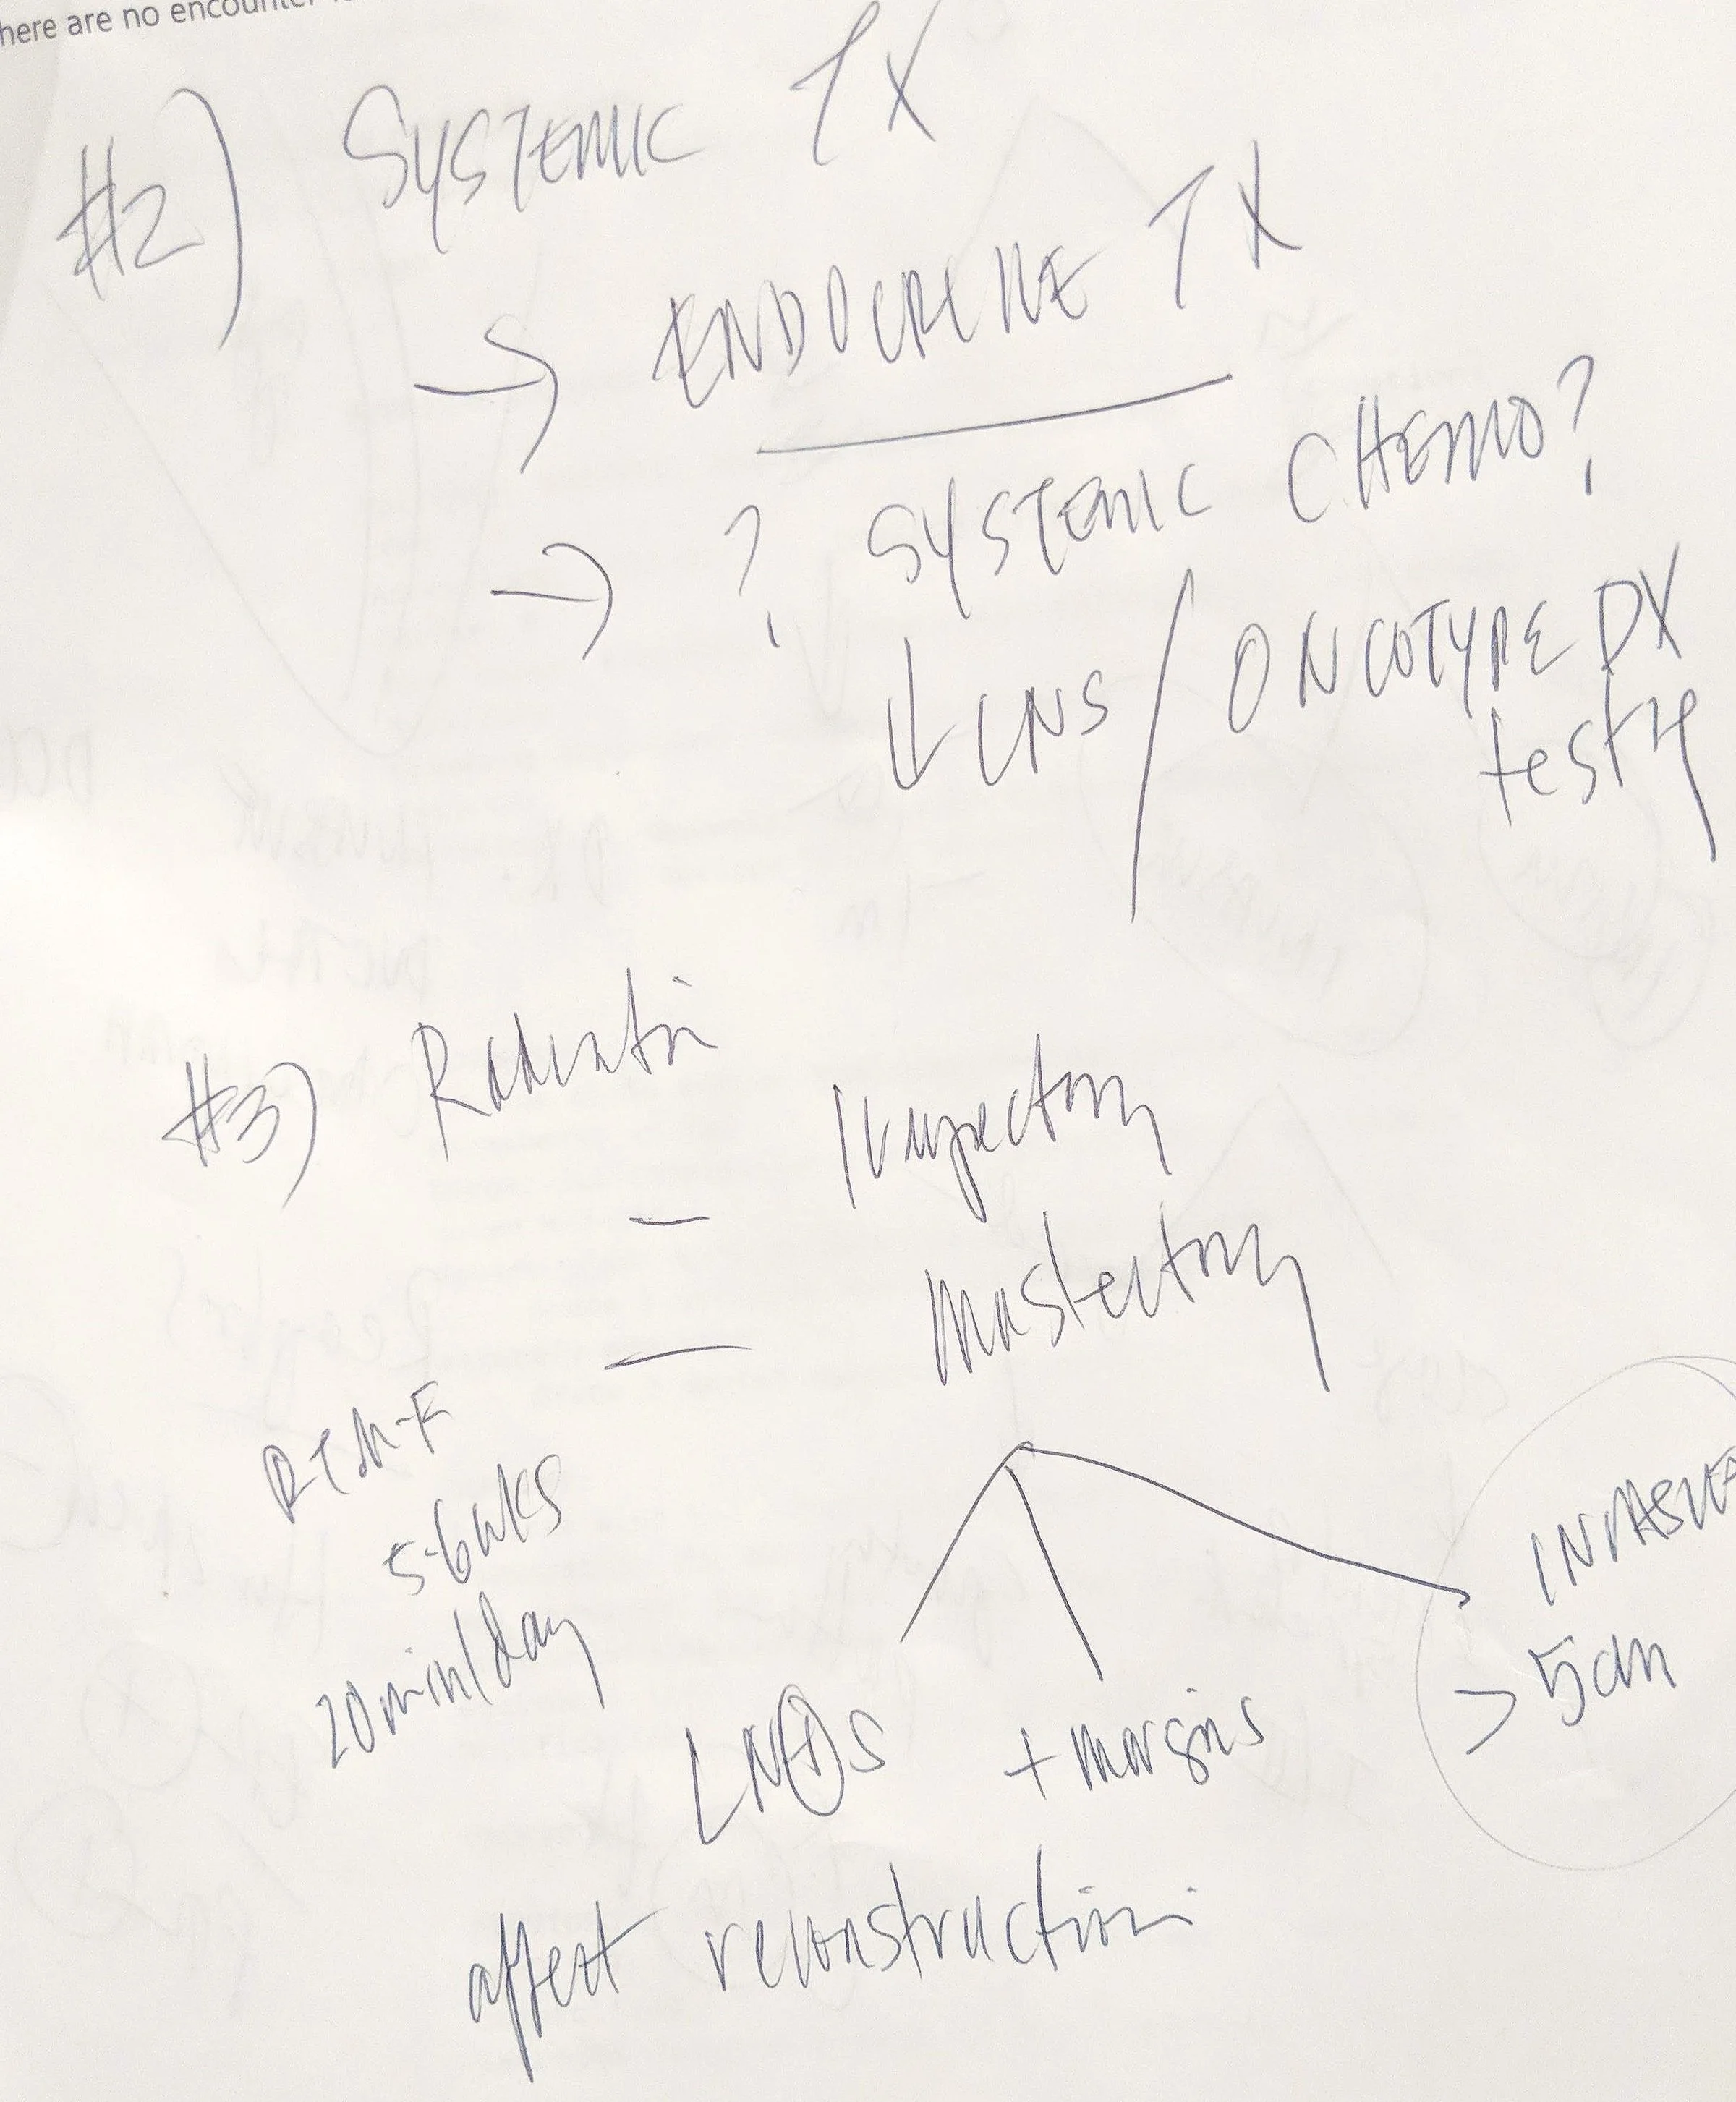 here are no encounter
#2) SYSTEMIC TX
→ ENDOCRINE TX
→ ? SYSTEMIC CHEMO?
↓ LNS / ONCOTYPE DX
testing
#3) Radiation
- lumpectomy
- mastectomy
RT M-F
5-6 wks
20 min/day
INVASIVE
> 5cm
LN⊕S + margins
affect reconstruction